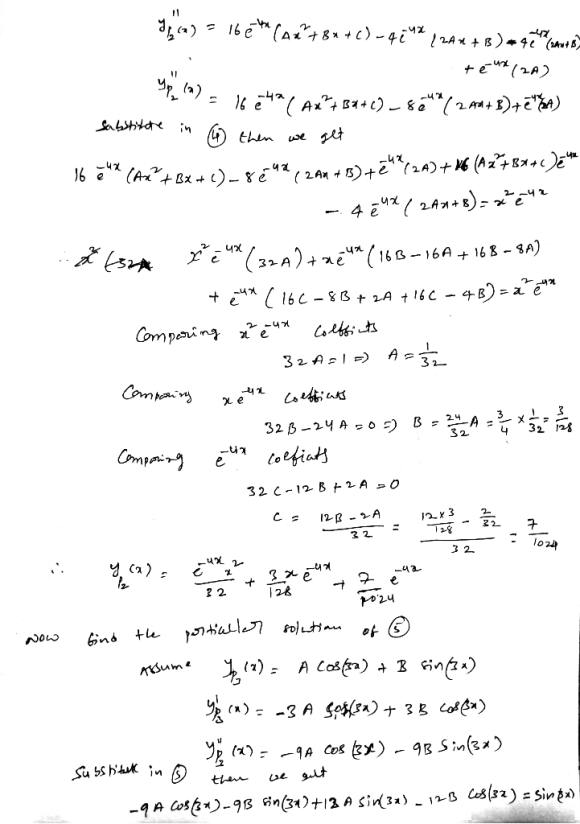 y''p₂(x) = 16 e^-4x (Ax²+Bx+C) - 4e^-4x (2Ax+B) - 4e^-4x (2Ax+B)
+ e^-4x (2A)
y''p₂(x) = 16 e^-4x (Ax²+Bx+C) - 8e^-4x (2Ax+B) + e^-4x (2A)
Substitute in ④ then we get
16 e^-4x (Ax²+Bx+C) - 8e^-4x (2Ax+B) + e^-4x (2A) + 16 (Ax²+Bx+C) e^-4x
- 4 e^-4x (2Ax+B) = x² e^-4x
∴ x² e^-4x (32A) + x e^-4x (16B - 16A + 16B - 8A)
+ e^-4x (16C - 8B + 2A + 16C - 4B) = x² e^-4x
Comparing x² e^-4x coefficints
32A = 1 => A = 1/32
Comparing x e^-4x coefficints
32B - 24A = 0 => B = 24/32 A = 3/4 × 1/32 = 3/128
Comparing e^-4x coeficints
32C - 12B + 2A = 0
C = (12B - 2A)/32 = (12×3/128 - 2/32)/32 = 7/1024
∴ yp₂(x) = e^-4x x²/32 + 3x e^-4x/128 + 7/1024 e^-4x
Now find the particular solution of ⑤
Assume yp₃(x) = A cos(3x) + B sin(3x)
y'p₃(x) = -3A sin(3x) + 3B cos(3x)
y''p₃(x) = -9A cos(3x) - 9B sin(3x)
Substitute in ⑤ then we get
-9A cos(3x) - 9B sin(3x) + 12A sin(3x) - 12B cos(3x) = sin(3x)